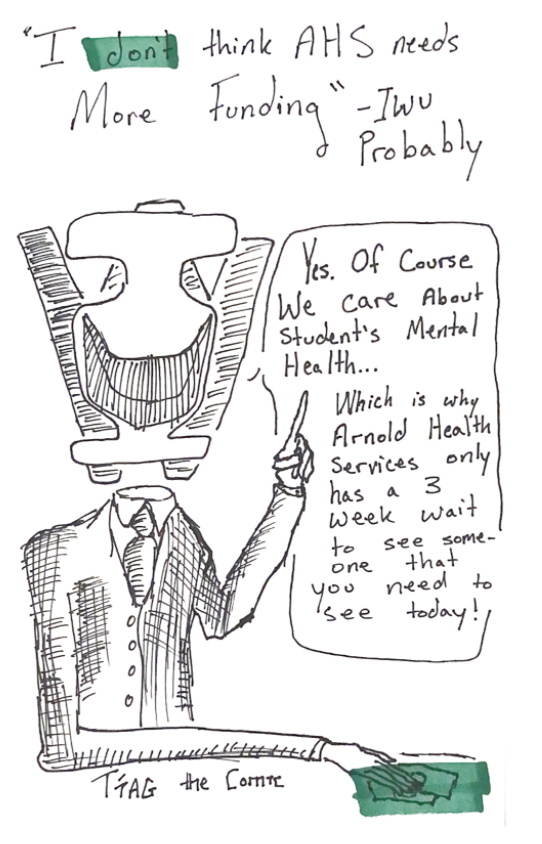 "I don't think AHS needs
More Funding" -IWU
Probably
Yes. Of Course
We Care About
Student's Mental
Health...
Which is why
Arnold Health
Services only
has a 3
week wait
to see some-
one that
you need to
see today!
the Comic